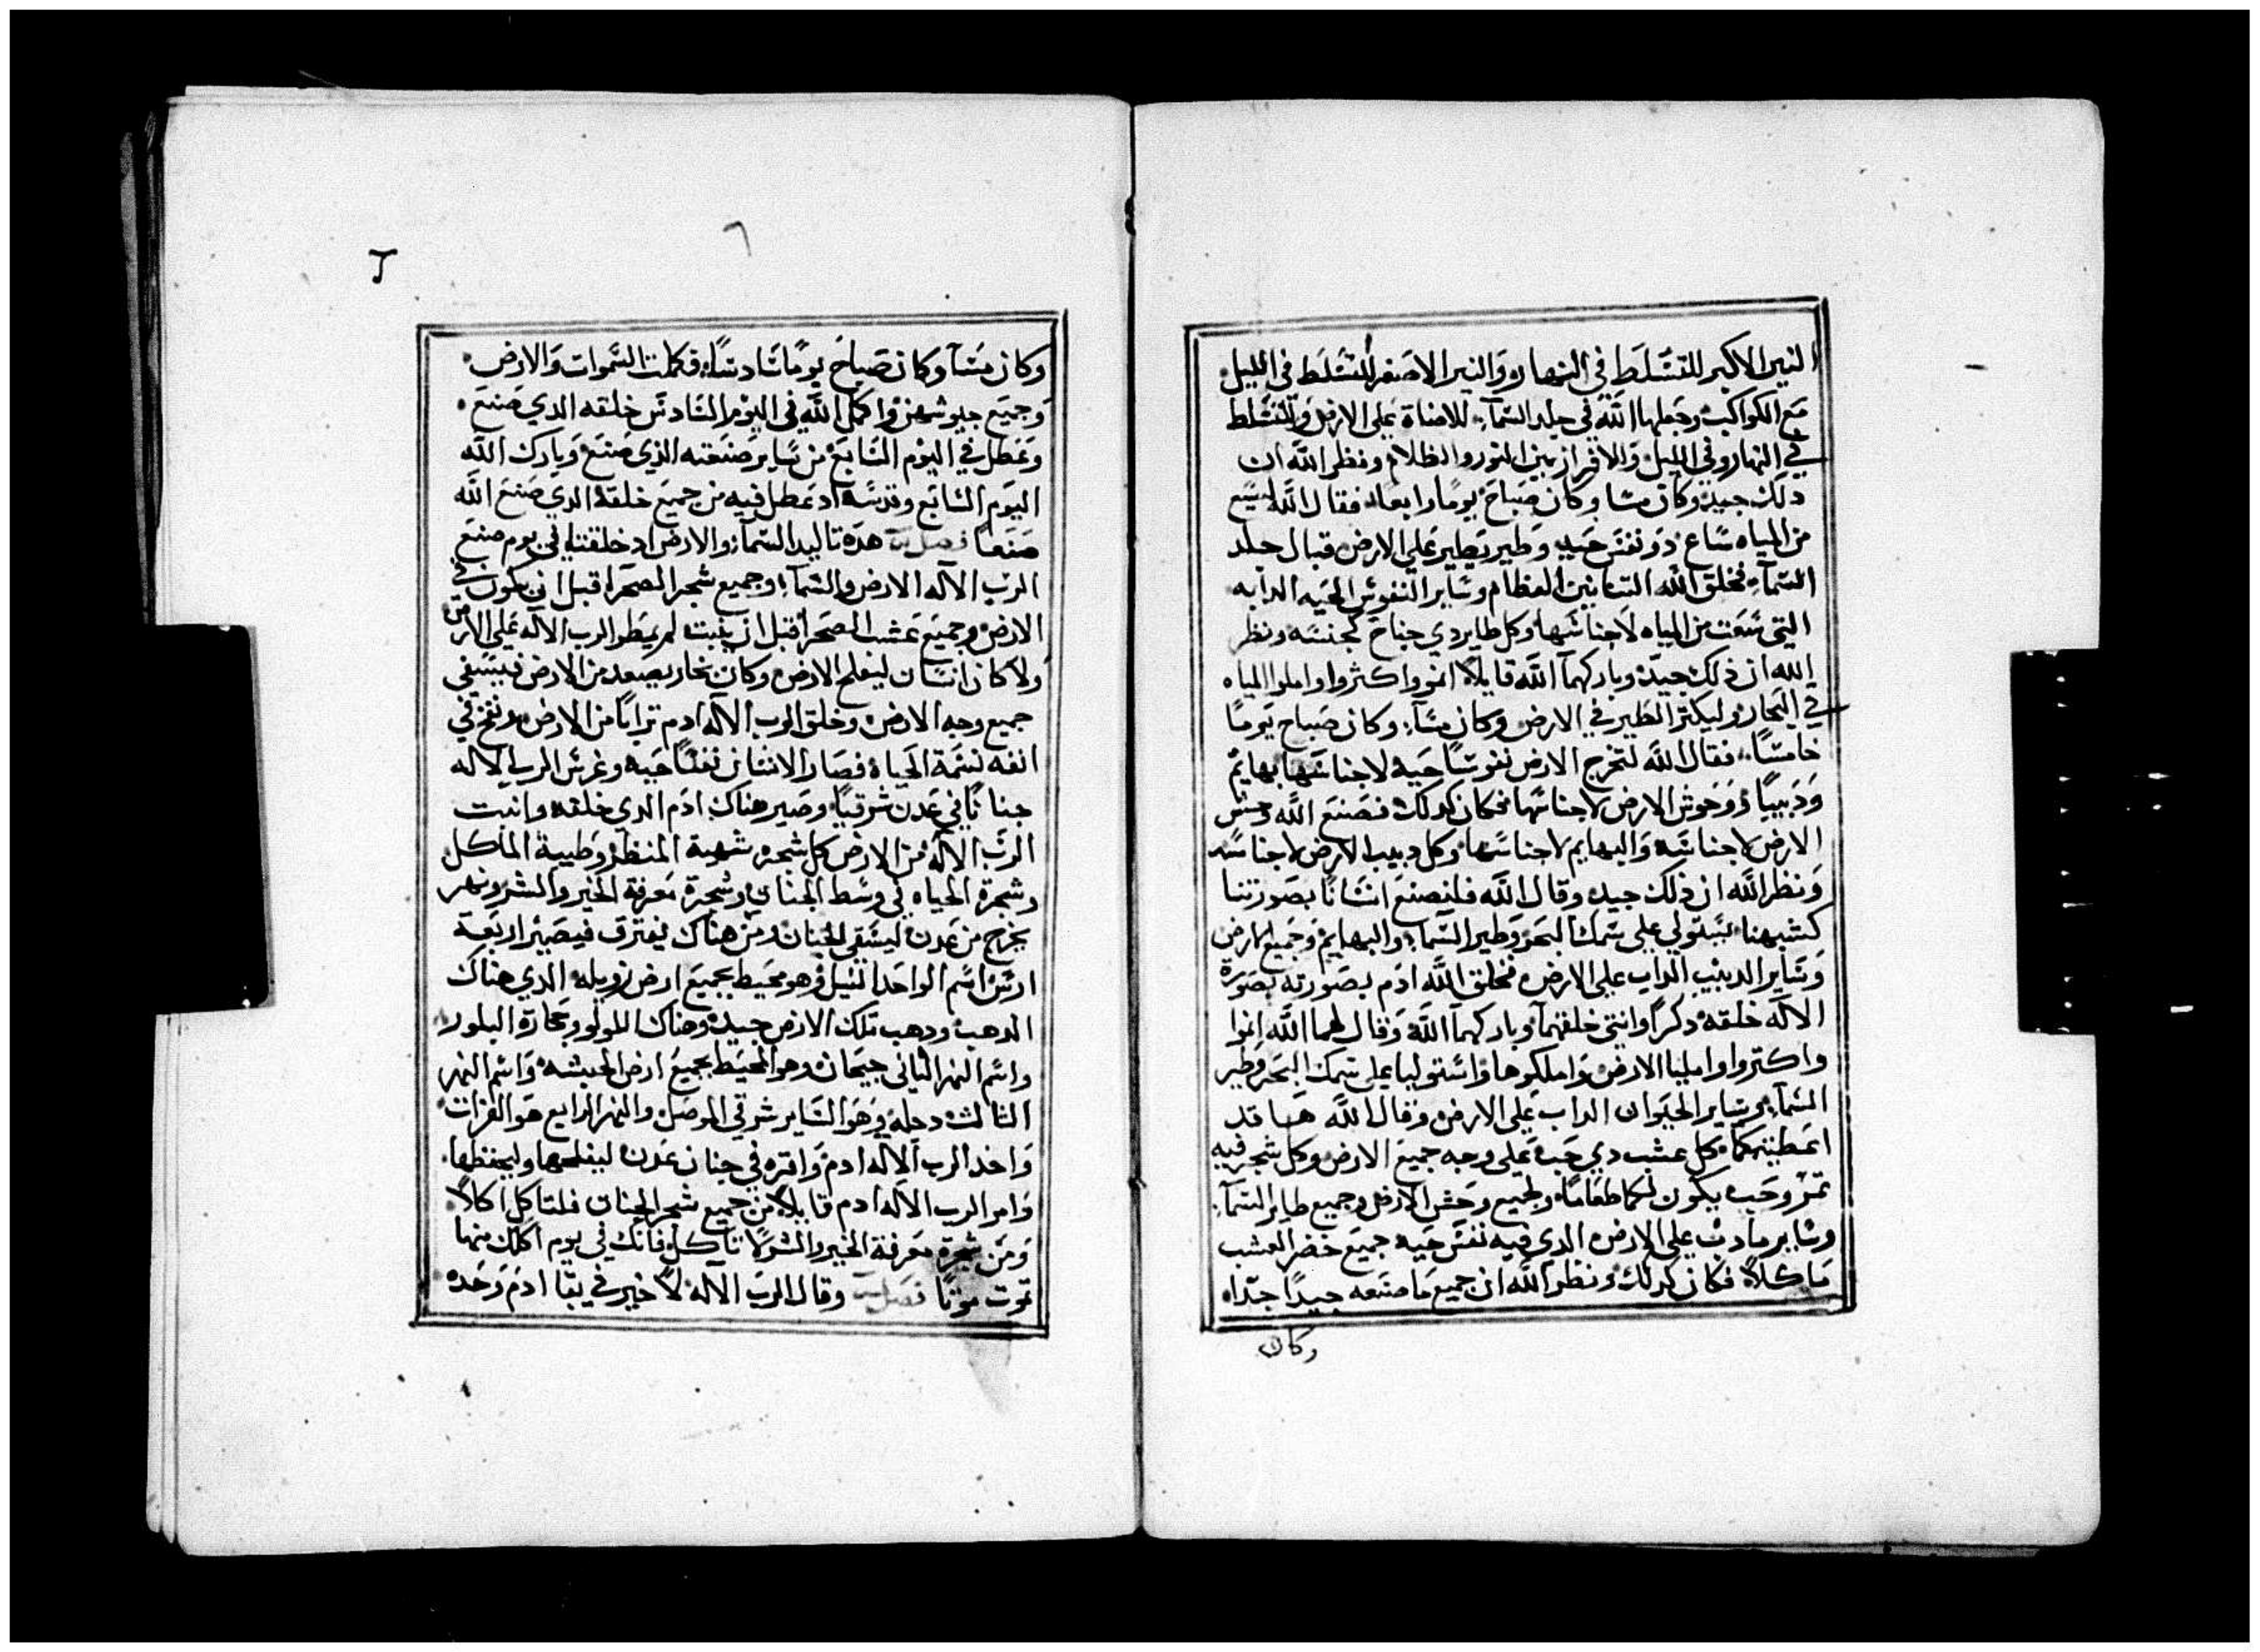 النير الاكبر للتسلط في النهار والنير الاصغر للتسلط في الليل
مع الكواكب وجعلها الله في جلد السمآء للاضاة على الارض وللتسلط
في النهار وفي الليل والافراز بين النور والظلام ونظر الله ان
دلك جيد وكان مسا وكان صباح يومًا رابعا فقال الله ليسع
من المياه ساع دو نفس حيه وطير يطير على الارض قبال جلد
السمآء فخلق الله التنانين العظام وساير النفوس الحيه الدابه
التي سعت من المياه لاجناسها وكل طاير دي جناح لجنسه ونظر
الله ان ذلك جيد وباركهما الله قايلًا انموا واكثروا واملوا المياه
في البحار وليكتر الطير في الارض وكان مسآء وكان صباح يومًا
خامسًا فقال الله لتخرج الارض نفوسًا حيه لاجناسها بهايم
ودبيبًا ووحوش الارض لاجناسها فكان كدلك فصنع الله وحش
الارض لاجناسه والبهايم لاجناسها وكل دبيب الارض لاجناسه
ونظر الله ان ذلك جيد وقال الله فلنصنع انسانًا بصورتنا
كشبهنا يستولي على سمك البحر وطير السمآء والبهايم وجميع الارض
وساير الدبيب الداب على الارض فخلق الله ادم بصورته بصورة
الاله خلقه دكرًا وانتى خلقهما وباركهما الله وقال لهما الله انموا
واكتروا واملیا الارض واملكوها واستوليا على سمك البحر وطير
السمآء وساير الحيوان الداب على الارض وقال الله ها قد
اعطيتكما كل عشب دي حب على وجه جميع الارض وكل شجر فيه
تمر وحب يكون لكما طعامًا ولجميع وحش الارض وجميع طاير السمآء
وساير ما دب على الارض الدي فيه نفس حيه جميع خضر العشب
ماكلًا فكان كدلك ونظر الله ان جميع ما صنعه جيدًا جدًا
وكان
٦
وكان مسآء وكان صباح يومًا سادسًا فكملت السموات والارض
وجميع جيوشهن واكمل الله في اليوم السادس خلقه الدي صنع
وعطل في اليوم السابع من ساير صنعته الذي صنع وبارك الله
اليوم السابع وقدسه اد عطل فيه من جميع خلقه الدي صنع الله
صنعًا فصل هده تاليد السمآء والارض اد خلقتا في يوم صنع
الرب الاله الارض والسمآء وجميع شجر الصحرا قبل ان يكون في
الارض وجميع عشب الصحرا قبل ان ينبت لم يمطر الرب الاله على الارض
ولا كان انسان ليفلح الارض وكان بخار يصعد من الارض فيسقي
جميع وجه الارض وخلق الرب الاله ادم ترابًا من الارض ونفخ في
انفه نسمة الحياه فصار الانسان نفسًا حيه وغرس الرب الاله
جنانًا في عدن شرقيًا وصير هناك ادم الدي خلقه وانبت
الرب الاله من الارض كل شجره شهية المنظر وطيبة الماكل
وشجرة الحياه في وسط الجنان وشجرة معرفة الخير والشر ونهر
يخرج من عدن ليسقي الجنان ومن هناك يفترق فيصير اربعة
ارس اسم الواحد النيل وهو محيط بجميع ارض زويله الدي هناك
الدهب ودهب تلك الارض جيد وهناك اللولو وحجارة البلور
واسم النهر التاني جيحان وهو المحيط بجميع ارض الحبشه واسم النهر
التالت دجله وهو الساير شرقي الموصل والنهر الرابع هو الفرات
واخد الرب الاله ادم واقره في جنان عدن ليفلحها وليحفظها
وامر الرب الاله ادم قايلًا من جميع شجر الجنان فلتاكل اكلًا
ومن شجرة معرفة الخير والشر لا تاكل فانك في يوم اكلك منها
تموت موتًا فصل وقال الرب الاله لا خير في بقا ادم وحده